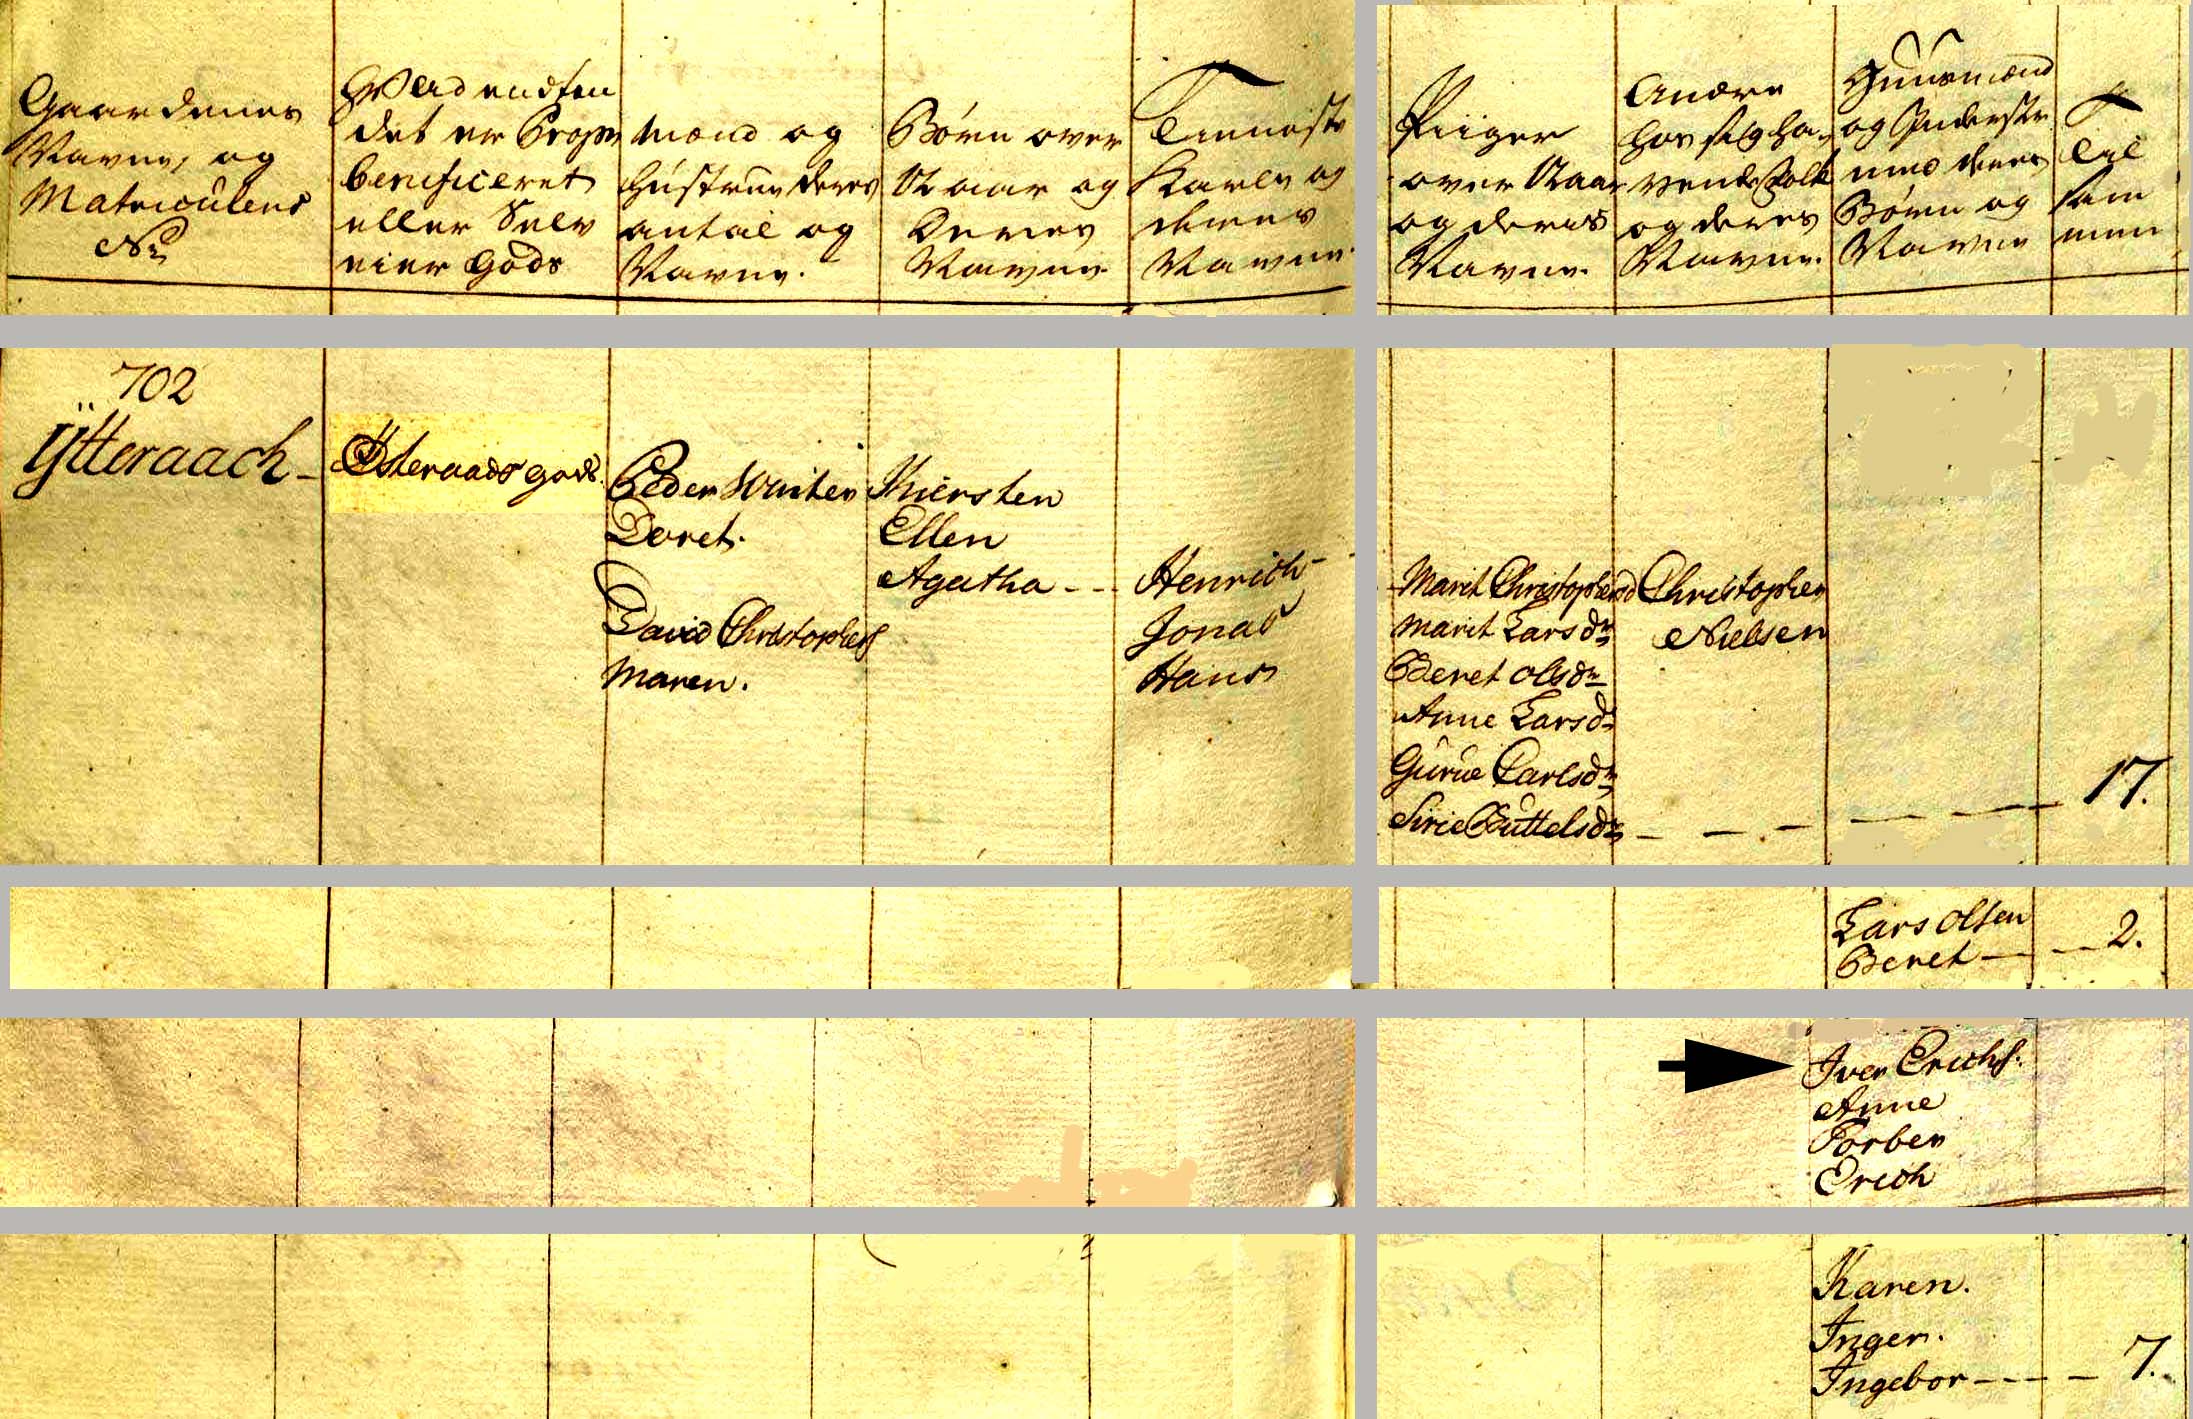 Gaardenes
Navne, og
Matriculens
No
Hvad endten
det er Propr
benificeret
eller Selv
eier Gods
Mænd og
Hustruer deres
antal og
Navne.
Børn over
12 aar og
Deres
Navne
Tienneste
Karle og
deres
Navne
Piiger
over 12 aar
og deris
Navne.
Andre
hos sig ha-
vende Folk
og deres
Navne.
Huusmænd
og Inderster
med deres
Børn og
Navne
Til
sam
men
702
Ÿtteraach
Østeraads gods.
Peder Winter
Deret.
David Christophers
Maren.
Kiersten
Ellen
Agatha
Henrich
Jonas
Hans
Marit Christophersd
Marit Larsdr
Beret Olsdr
Anne Larsdr
Gurue Carlsdr
Sirie Buttelsdr
Christopher
Nielsen
17.
Lars Olsen
Beret
2.
Iver Erichs.
Anne
Torber
Erich
Karen.
Inger.
Ingebor
7.